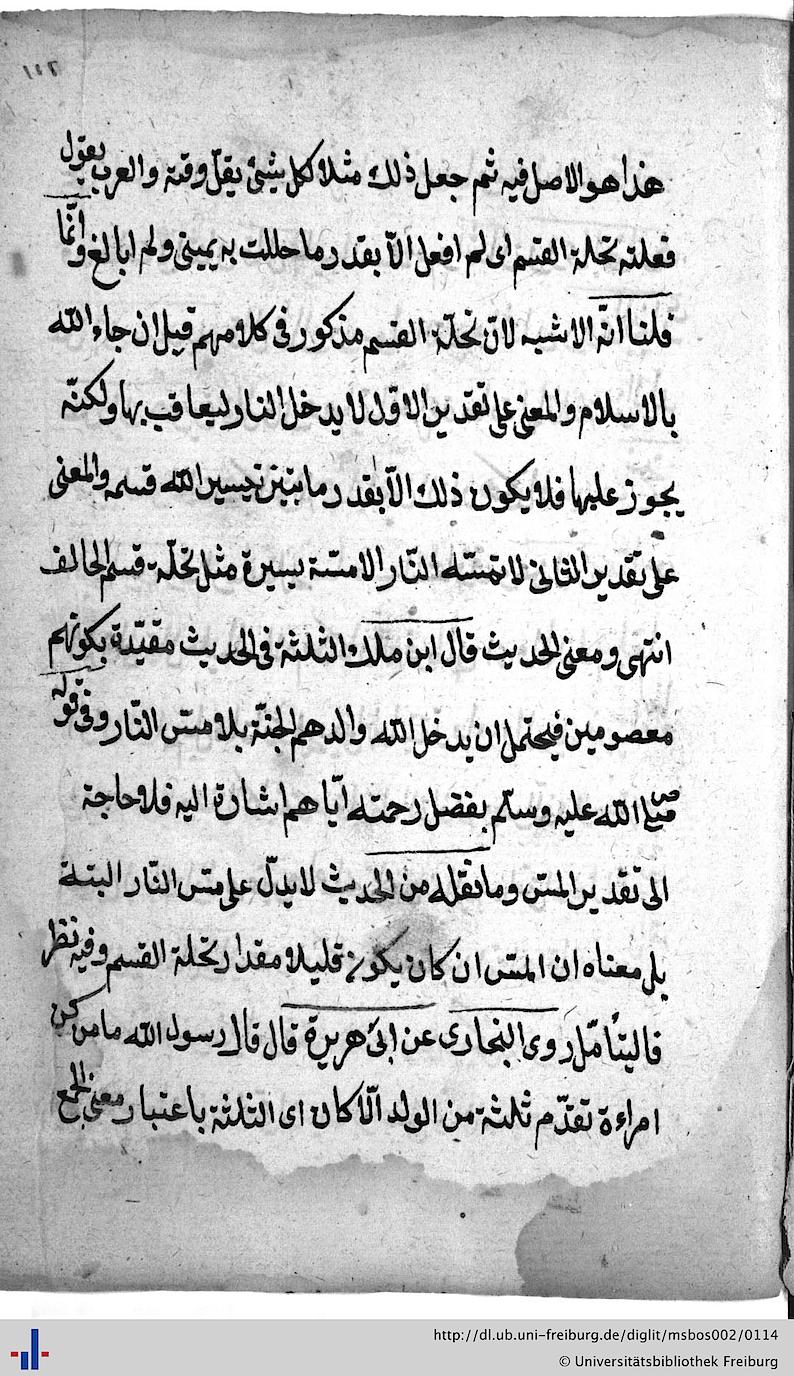 هذا هو الاصل فيه ثم جعل ذلك مثلا لكل شئ يقلّ وقته والعرب يقول
فعلته تحلة القسم اى لم افعل الّا بقدر ما حللت به يمينى ولم ابالغ وانّما
قلنا انّه الاشبه لانّ تحلّة القسم مذكور فى كلامهم قبل ان جاء الله
بالاسلام والمعنى على تقدير الاوّل لا يدخل النار ليعاقب بها ولكنّه
يجوز عليها فلا يكون ذلك الّا بقدر ما الله قسمه والمعنى
على تقدير الثانى لا تمسّه النّار الا مسّة يسيرة مثل تحلّة قسم الحالف
انتهى ومعنى الحديث قال ابن ملك الثلثة فى الحديث مقيّدة بكونهم
معصومين فيحتمل ان يدخل الله والدهم الجنّة بلا مسّ النّار وفى قوله
صلى الله عليه وسلم بفضل رحمته ايّاهم اشارة اليه فلا حاجة
الى تقدير المسّ وما نقله من الحديث لا يدلّ على مسّ النّار البتة
بل معناه ان المسّ ان كان يكون قليلا مقدار تحلة القسم وفيه نظر
فاليتأمّل روى البخارى عن ابى هريرة قال قال رسول الله ما من كن
امراءة تقدّم ثلثة من الولد الّا كان اى الثلثة باعتبار معنى الجمع
http://dl.ub.uni-freiburg.de/diglit/msbos002/0114
© Universitätsbibliothek Freiburg